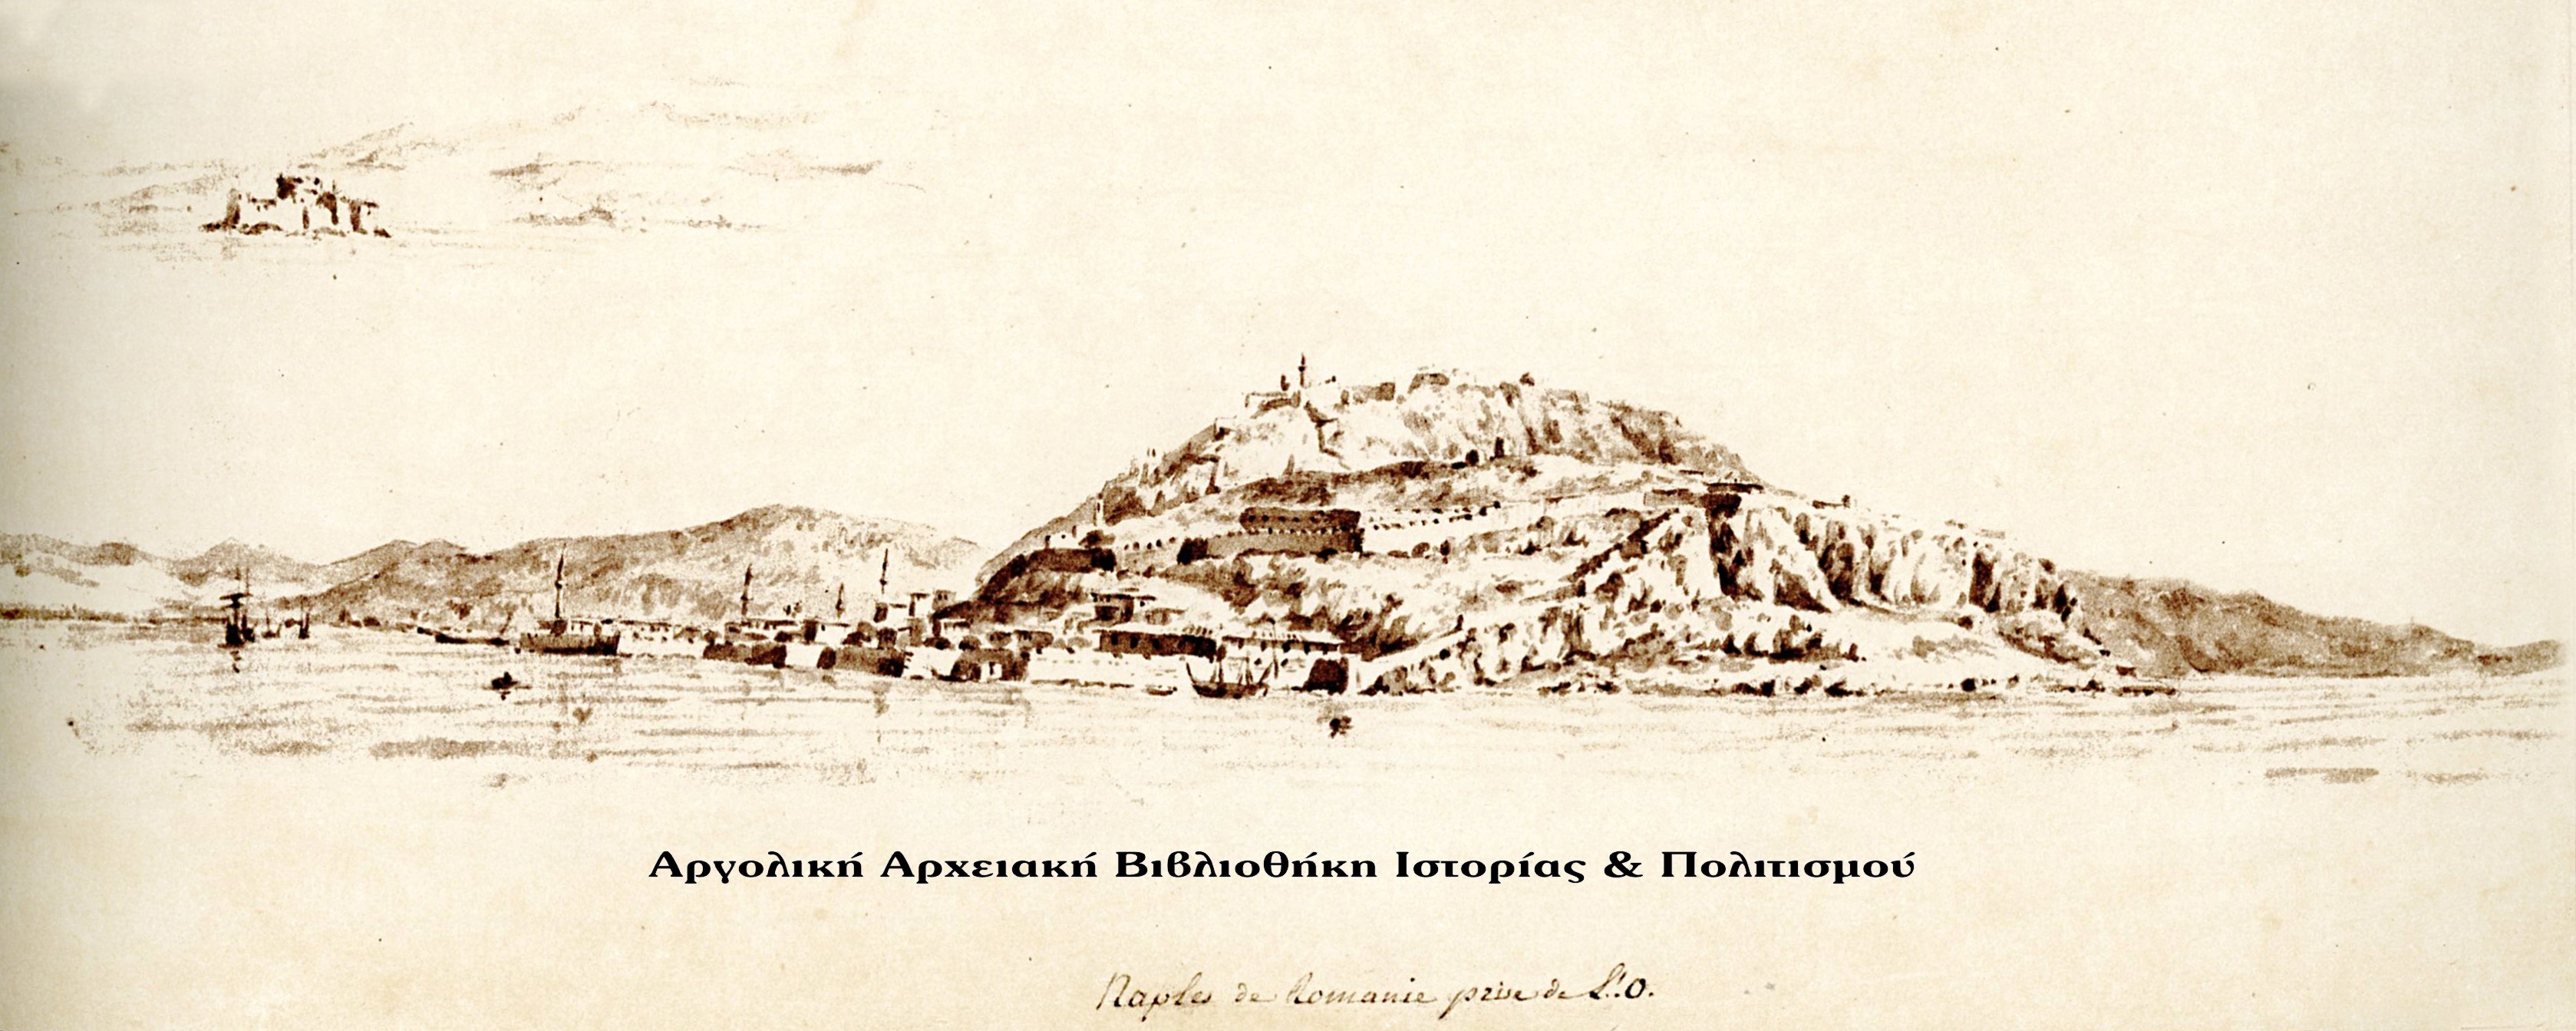 Αργολική Αρχειακή Βιβλιοθήκη Ιστορίας & Πολιτισμού
Naples de Romanie prise de L'.O.